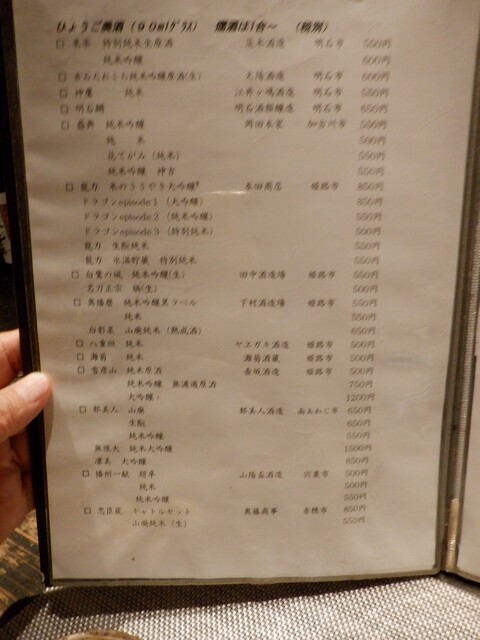 ひょうご美酒(90mlグラス) 燗酒は1合~ (税別)
□ 来楽 特別純米生原酒 茨木酒造 明石市 550円
純米吟醸 600円
□ 赤石たれくち純米吟醸原酒(生) 太陽酒造 明石市 600円
□ 神鷹 純米 江井ヶ嶋酒造 明石市 550円
□ 明石鯛 明石酒類醸造 明石市 650円
□ 盛典 純米吟醸 岡田本家 加古川市 550円
純 米 500円
花てがみ(純米) 550円
純米吟醸 神吉 550円
□ 龍力 米のささやき大吟醸 本田商店 姫路市 850円
ドラゴンepisode 1(大吟醸) 850円
ドラゴンepisode 2(純米吟醸) 550円
ドラゴンepisode 3(特別純米) 500円
龍力 生酛純米 550円
龍力 氷温貯蔵 特別純米 550円
□ 白鷺の城 純米吟醸(生) 田中酒造場 姫路市 550円
名刀正宗 (生) 500円
□ 奥播磨 純米吟醸黒ラベル 下村酒造場 姫路市 550円
純米 550円
白影泉 山廃純米(熟成酒) 650円
□ 八重垣 純米 ヤヱガキ酒造 姫路市 500円
□ 灘菊 純米 灘菊酒造 姫路市 500円
□ 雪彦山 純米原酒 壺坂酒造 姫路市 500円
純米吟醸 無濾過原酒 750円
大吟醸 1200円
□ 都美人 山廃 都美人酒造 南あわじ市 650円
生酛 650円
純米吟醸 550円
無限大 純米大吟醸 1500円
凛美 大吟醸 850円
□ 播州一献 超辛 山陽盃酒造 宍粟市 500円
純米 500円
純米吟醸 550円
□ 忠臣蔵 キャトルセット 奥藤商事 赤穂市 850円
山廃純米(生) 550円